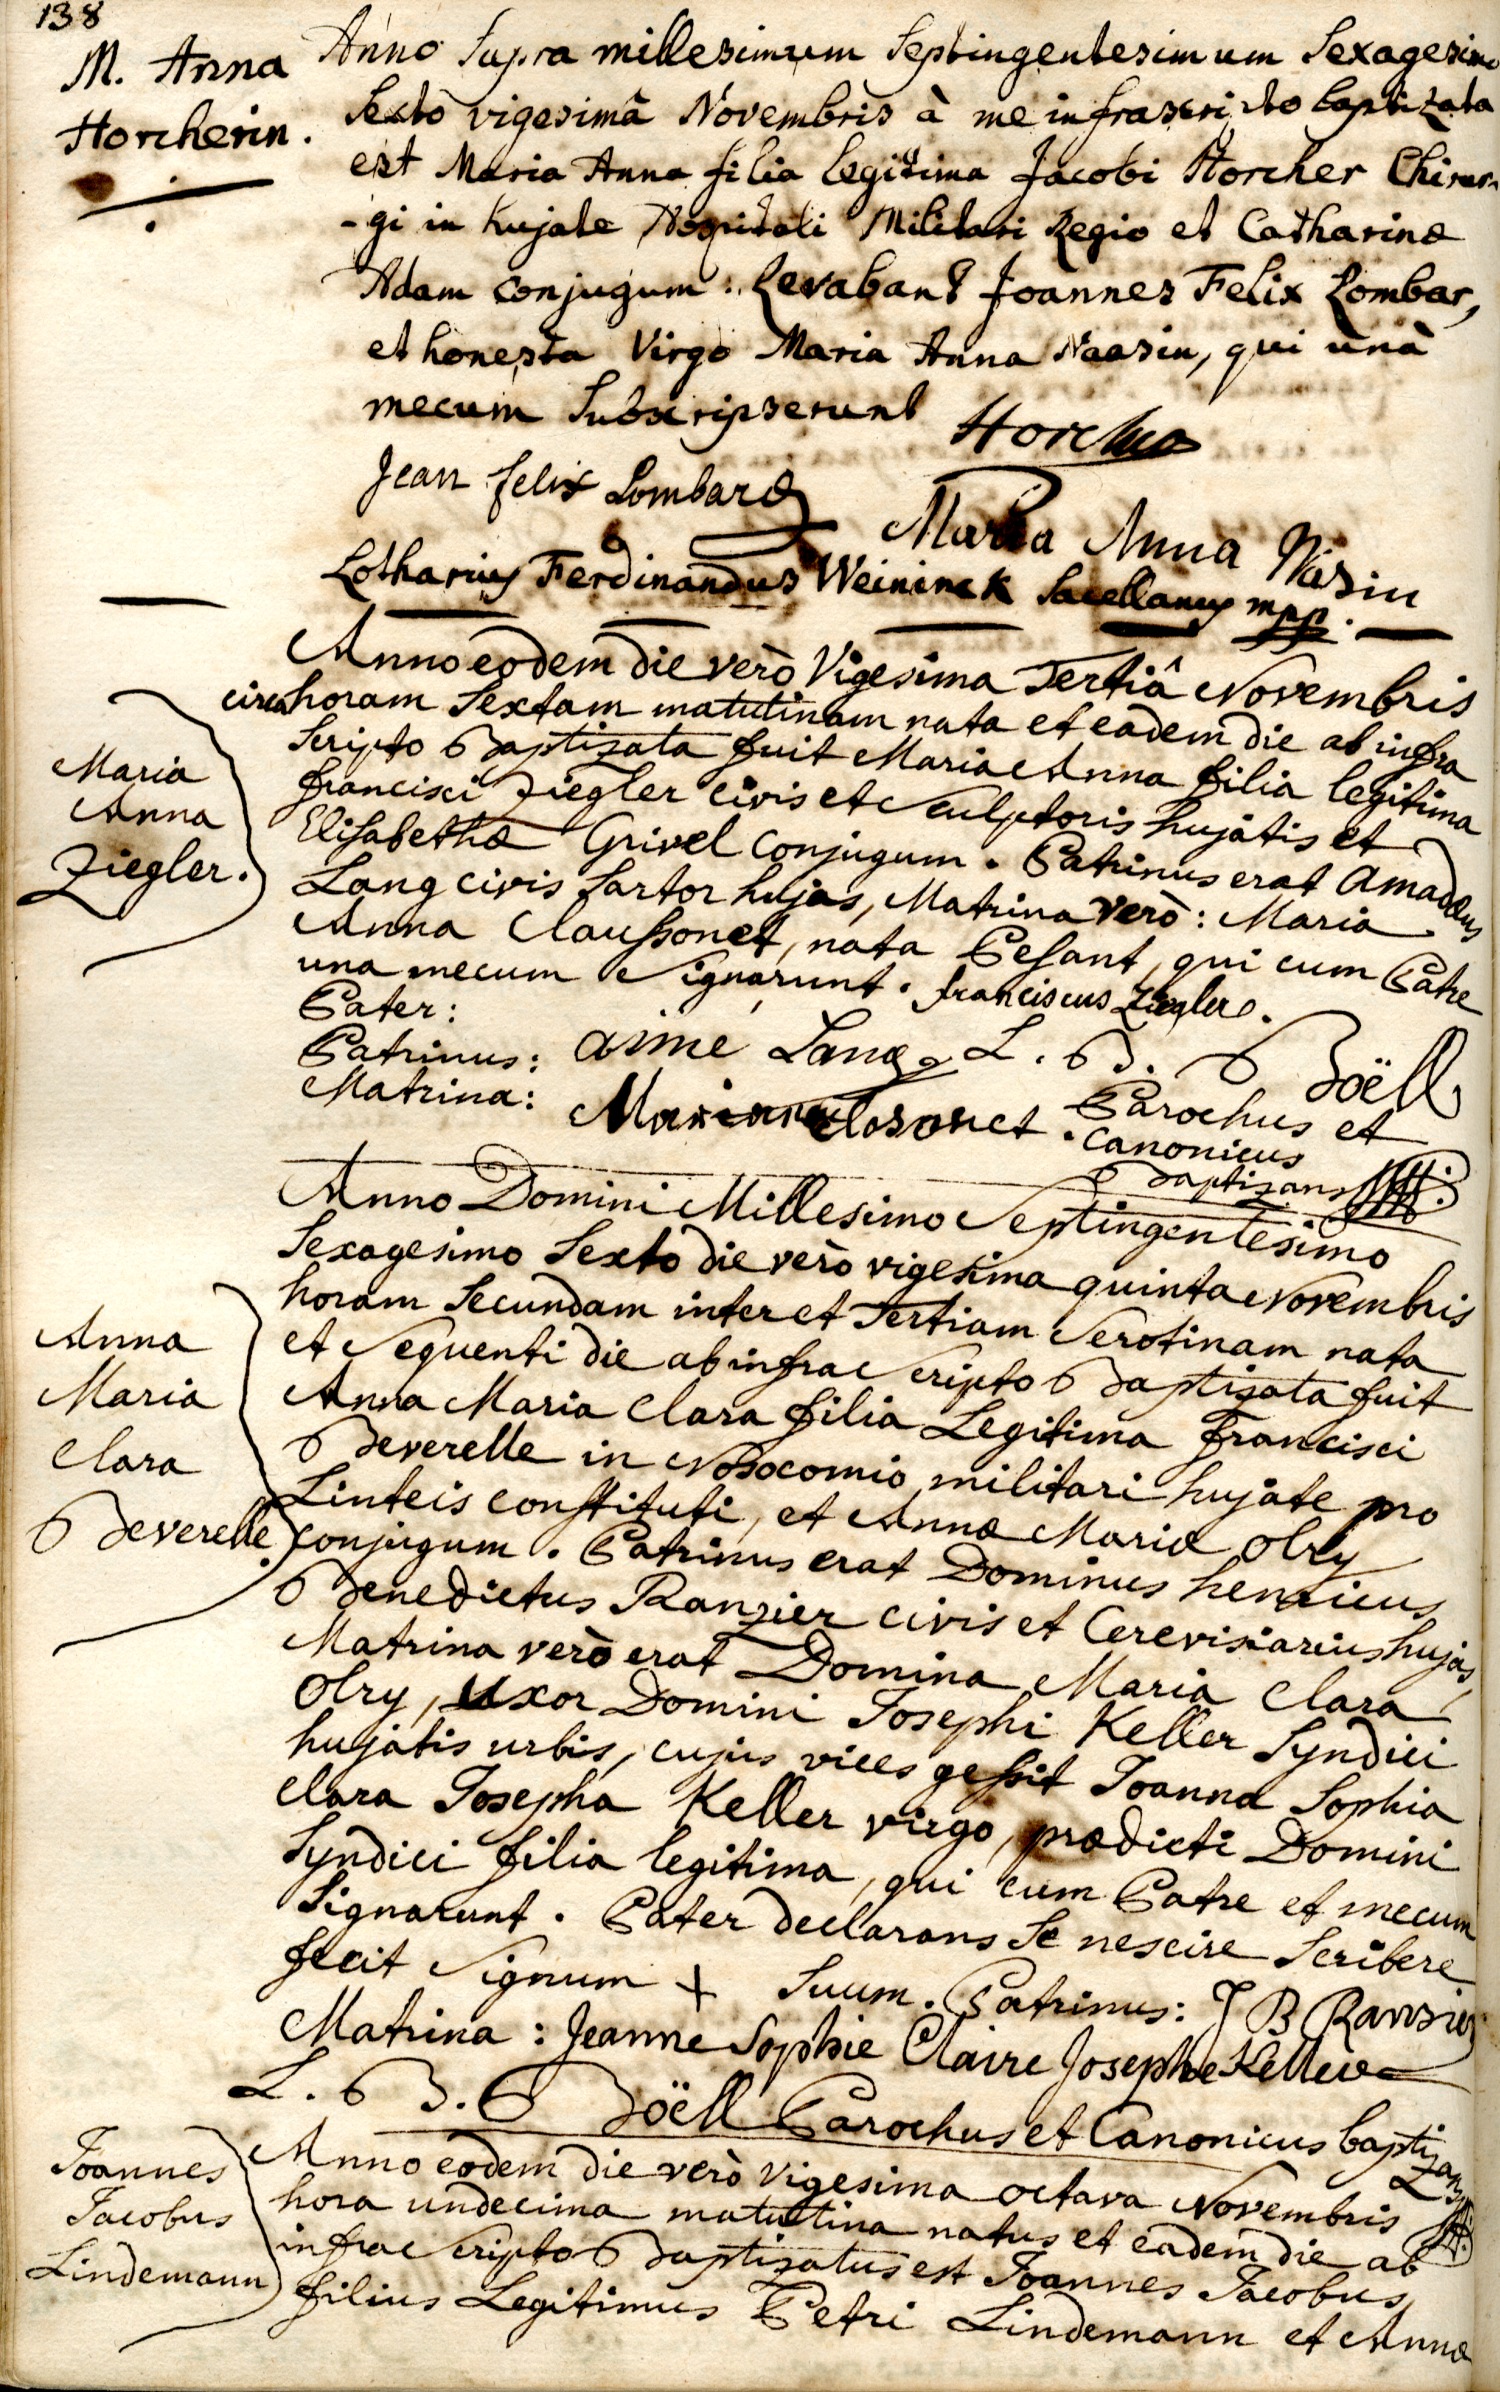 138
M. Anna
Horcherin.
Anno Supra millesimum Septingentesimum Sexagesimo
Sexto vigesimâ Novembris à me infrascripto baptizata
est Maria Anna filia legitima Jacobi Horcher Chirur-
-gi in hujate Hospitali Militari Regio et Catharinæ
Adam conjugum: Levabant Joannes Felix Lombar,
et honesta Virgo Maria Anna Naasin, qui unà
mecum Subscripserunt
Horcher
Jean felix Lombard
Maria Anna Nasin
Lotharius Ferdinandus Weininck Sacellanus mpp.
Maria
Anna
Ziegler.
Anno eodem die verò Vigesima Tertiâ Novembris
circa horam Sextam matutinam nata et eadem die ab infra
Scripto Baptizata fuit Maria Anna filia legitima
francisci Ziegler civis et Sculptoris hujatis et
Elisabethæ Grivel conjugum. Patrinus erat Amadæus
Lang civis Sartor hujas, Matrina verò: Maria
Anna Claussonet, nata Pesant, qui cum Patre
una mecum Signarunt. franciscus Ziegler.
Pater:
Patrinus: aimé Lang L. B. Boëll
Matrina: Mariane closonet. Parochus et
canonicus
Baptizans
Anna
Maria
Clara
Beverelle
Anno Domini Millesimo Septingentesimo
Sexagesimo Sexto die verò vigesima quinta Novembris
horam Secundam inter et Tertiam Serotinam nata
et Sequenti die ab infra Scripto Baptizata fuit
Anna Maria Clara filia Legitima francisci
Beverelle in Nosocomio militari hujate pro
Linteis constituti, et Annæ Mariæ Olry
conjugum. Patrinus erat Dominus henricus
Benedictus Ranzier civis et Cerevisiarius hujas,
Matrina verò erat Domina Maria Clara
Olry, Uxor Domini Josephi Keller Syndici
hujatis urbis, cujus vices gessit Joanna Sophia
Clara Josepha Keller virgo, prædicti Domini
Syndici filia legitima, qui cum Patre et mecum
Signarunt. Pater declarans Se nescire Scribere
fecit Signum + Suum. Patrinus: J B Ransier
Matrina: Jeanne Sophie Claire Josephe Keller
L. B. Boëll Parochus et Canonicus baptizans
Joannes
Jacobus
Lindemann
Anno eodem die verò Vigesima octava Novembris
hora undecima matutina natus et eadem die ab
infra Scripto Baptizatus est Joannes Jacobus
filius Legitimus Petri Lindemann et Annæ